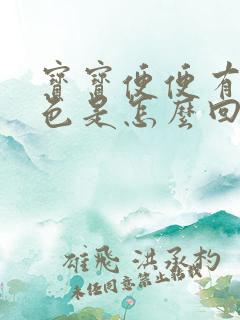 寶寶便便有
色是怎麼回
雄飛 洪承杓
未經同意禁止轉載